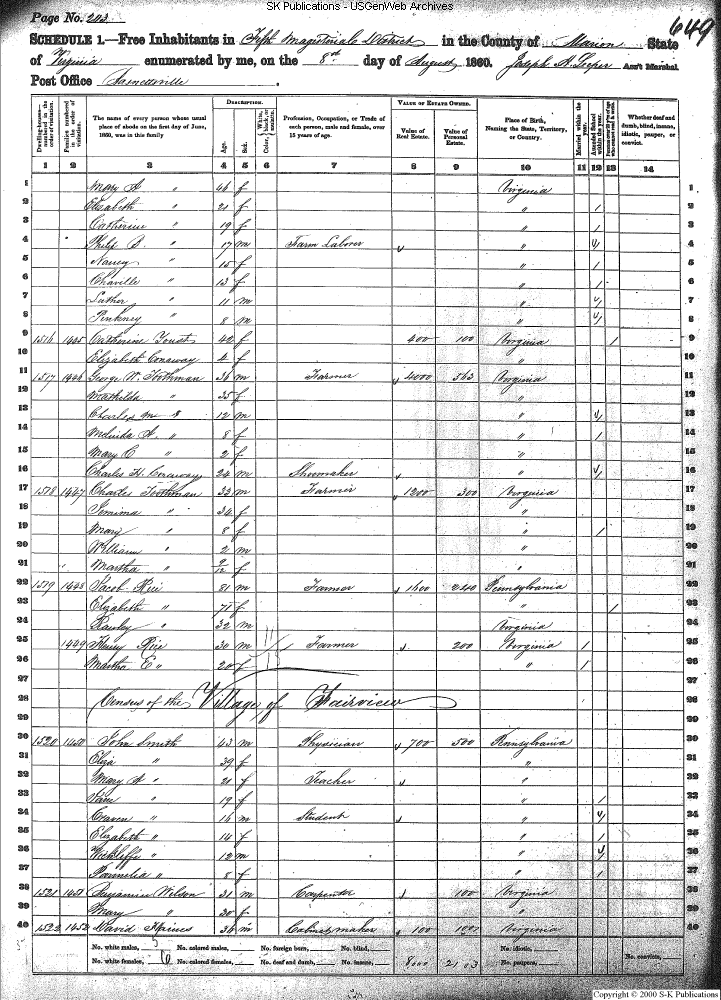 SK Publications - USGenWeb Archives
Page No. 203
649
SCHEDULE 1.—Free Inhabitants in Magisterial District in the County of Marion State
of Virginia enumerated by me, on the 8th day of August 1860. Joseph Ass't Marshal.
Post Office
DESCRIPTION. VALUE OF ESTATE OWNED.
Dwelling-houses—numbered in the order of visitation. Families numbered in the order of visitation. The name of every person whose usual place of abode on the first day of June, 1860, was in this family Age. Sex. White, black, or mulatto. Color, Profession, Occupation, or Trade of each person, male and female, over 15 years of age. Value of Real Estate. Value of Personal Estate. Place of Birth, Naming the State, Territory, or Country. Married within the year. Attended School within the year. Persons over 20 y'rs of age who cannot read & write. Whether deaf and dumb, blind, insane, idiotic, pauper, or convict.
1 2 3 4 5 6 7 8 9 10 11 12 13 14
1 Mary A " 46 f Virginia 1
2 Elizabeth " 21 f " 1 2
3 Catherine " 19 f " 1 3
4 Philip B. " 17 m Farm Laborer " 1 4
5 Nancy " 15 f " 1 5
6 " 13 f " 1 6
7 Luther " 11 m " 1 7
8 Pinkney " 8 m " 1 8
9 1516 1445 Catherine Toust 42 f 400 100 Virginia 1 9
10 Elizabeth Conaway 4 f " 10
11 1517 1446 George W. Toothman 36 m Farmer 4000 563 Virginia 11
12 Mathilda " 35 f " 12
13 Charles M " 12 m " 1 13
14 Melinda A. " 8 f " 1 14
15 Mary C " 2 f " 15
16 Charles H. 24 m Shoemaker " 1 16
17 1518 1447 Charles Toothman 33 m Farmer 1200 300 Virginia 17
18 Jemima " 34 f " 18
19 Mary " 8 f " 1 19
20 William " 2 m " 20
21 " Martha " 9/12 f " 21
22 1519 1448 Jacob Rice 81 m Farmer 1600 240 Pennsylvania 22
23 Elizabeth " 71 f " 1 23
24 " 32 m Virginia 24
25 1449 Henry Rice 30 m Farmer 200 Virginia 1 25
26 Martha E " 20 f " 1 26
27 27
28 Census of the Village of Fairview 28
29 29
30 1520 1450 John Smith 43 m Physician 700 500 Pennsylvania 30
31 Eliza " 39 f " 31
32 Mary A " 21 f Teacher " 32
33 " 19 f " 1 33
34 Craven " 16 m Student " 1 34
35 Elizabeth " 14 f " 1 35
36 Wickliffe " 12 m " 1 36
37 Parmelia " 8 f " 1 37
38 1521 1451 Benjamin Wilson 31 m Carpenter 100 Virginia 38
39 Mary " 30 f " 39
40 1522 1452 David Haines 36 m Cabinet maker 100 1000 Virginia 40
No. white males, No. colored males, No. foreign born, No. blind, No. idiotic,
No. white females, No. colored females, No. deaf and dumb, No. insane, 8000 2103 No. paupers, No. convicts,
Copyright © 2000 S-K Publications